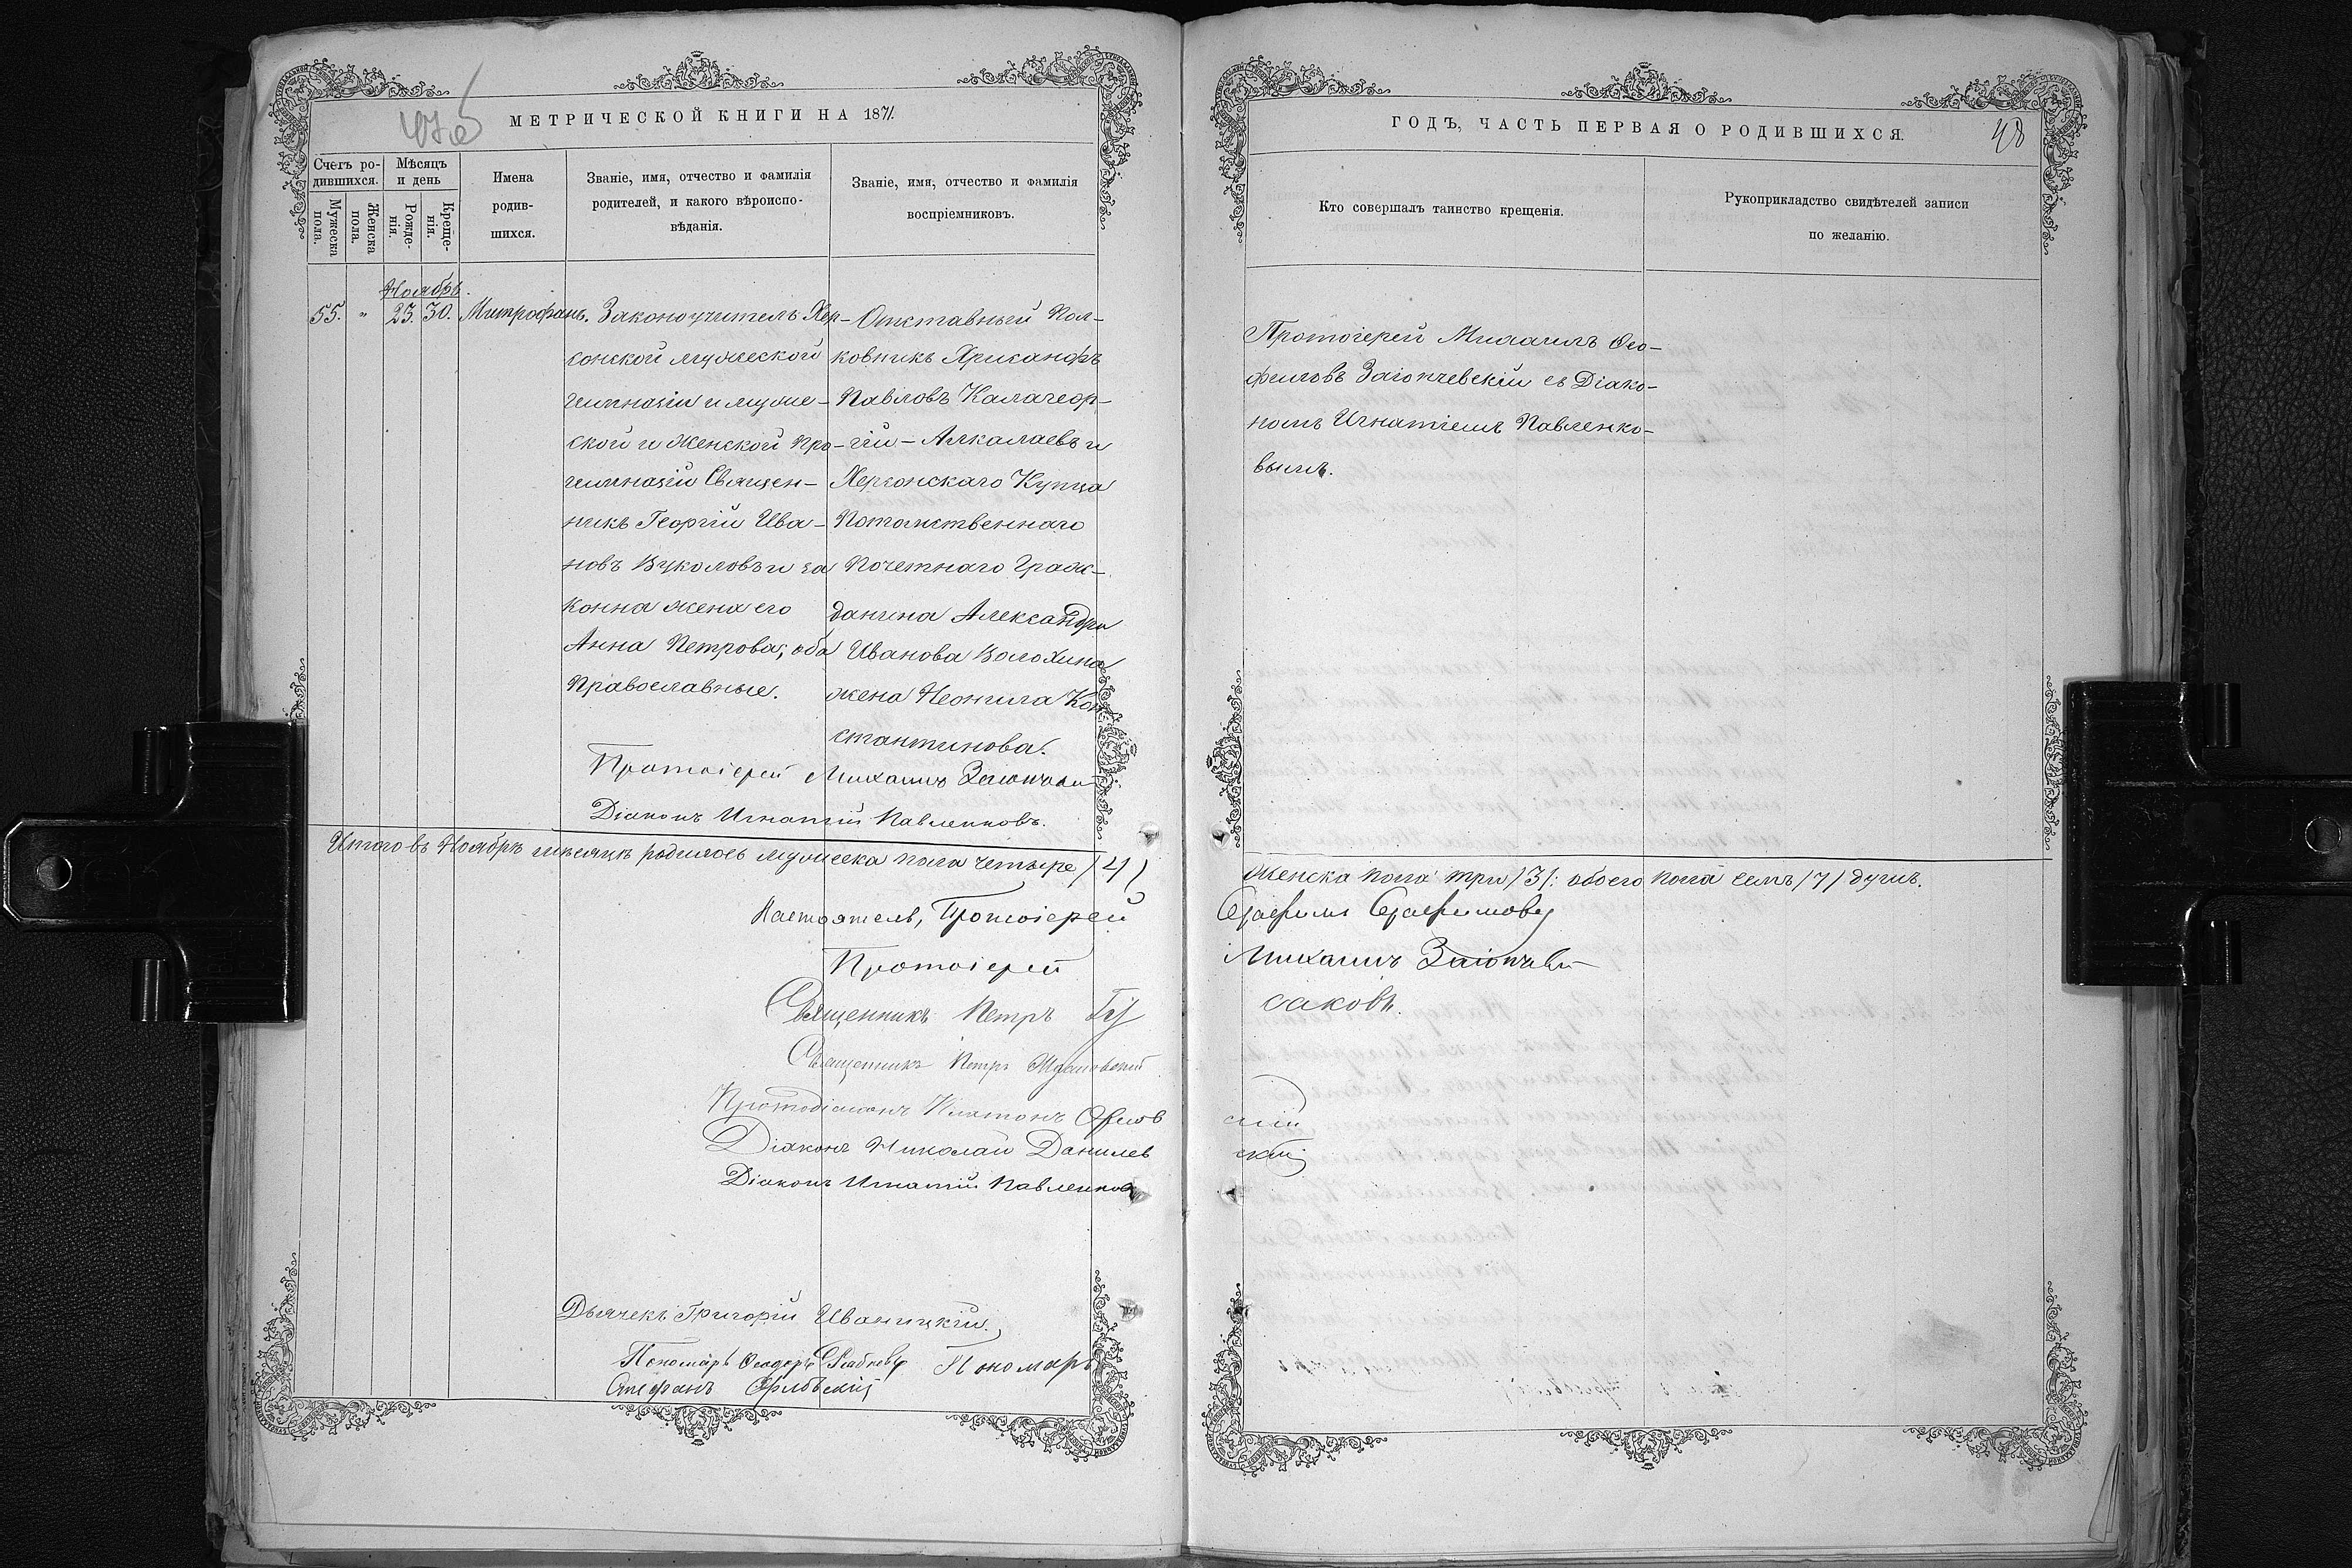 МЕТРИЧЕСКОЙ КНИГИ НА 1871.
Счетъ ро-
дившихся.
Мужеска
пола.
Женска
пола.
Мѣсяцъ
и день
Рожде-
нія.
Креще-
нія.
Имена
родив-
шихся.
Званіе, имя, отчество и фамилія
родителей, и какого вѣроиспо-
вѣданія.
Званіе, имя, отчество и фамилія
воспріемниковъ.
Ноябрь.
55. " 23. 30. Митрофанъ.
Законоучитель Хер-
сонской мужеской
гимназіи и муже-
ской и женской про-
гимназіи Священ-
никъ Георгій Ива-
новъ Вуколовъ и за
конна жена его
Анна Петрова, оба
православные.
Отставный Пол-
ковникъ Хрисанфъ
Павловъ Калагеор-
гій-Алкалаевъ и
Херсонскаго Купца
Потомственнаго
Почетнаго Граж-
данина Александра
Иванова Волохина
жена Неонила Кон
стантинова.
Протоіерей Михаилъ
Діаконъ Игнатій Павленковъ.
Итого въ Ноябрѣ мѣсяцѣ родилось мужеска пола четыре /4/
Настоятель, Протоіерей
Протоіерей
Священникъ Петръ
Священникъ Петръ
Протодіаконъ Платонъ
Діаконъ Николай Данилев
Діаконъ Игнатій Павленковъ
Дьячекъ Григорій Иваницкій.
Пономарь Ѳеодоръ Пономарь
Стефанъ Орловскій
ГОДЪ, ЧАСТЬ ПЕРВАЯ О РОДИВШИХСЯ.
48
Кто совершалъ таинство крещенія.
Рукоприкладство свидѣтелей записи
по желанію.
Протоіерей Михаилъ Ѳео-
филовъ Заіончевскій съ Діако-
номъ Игнатіемъ Павленко-
вымъ.
Женска пола три /3/: обоего пола семь /7/ душъ.
Серафимъ Серафимовъ
Михаилъ
саковъ.
скій